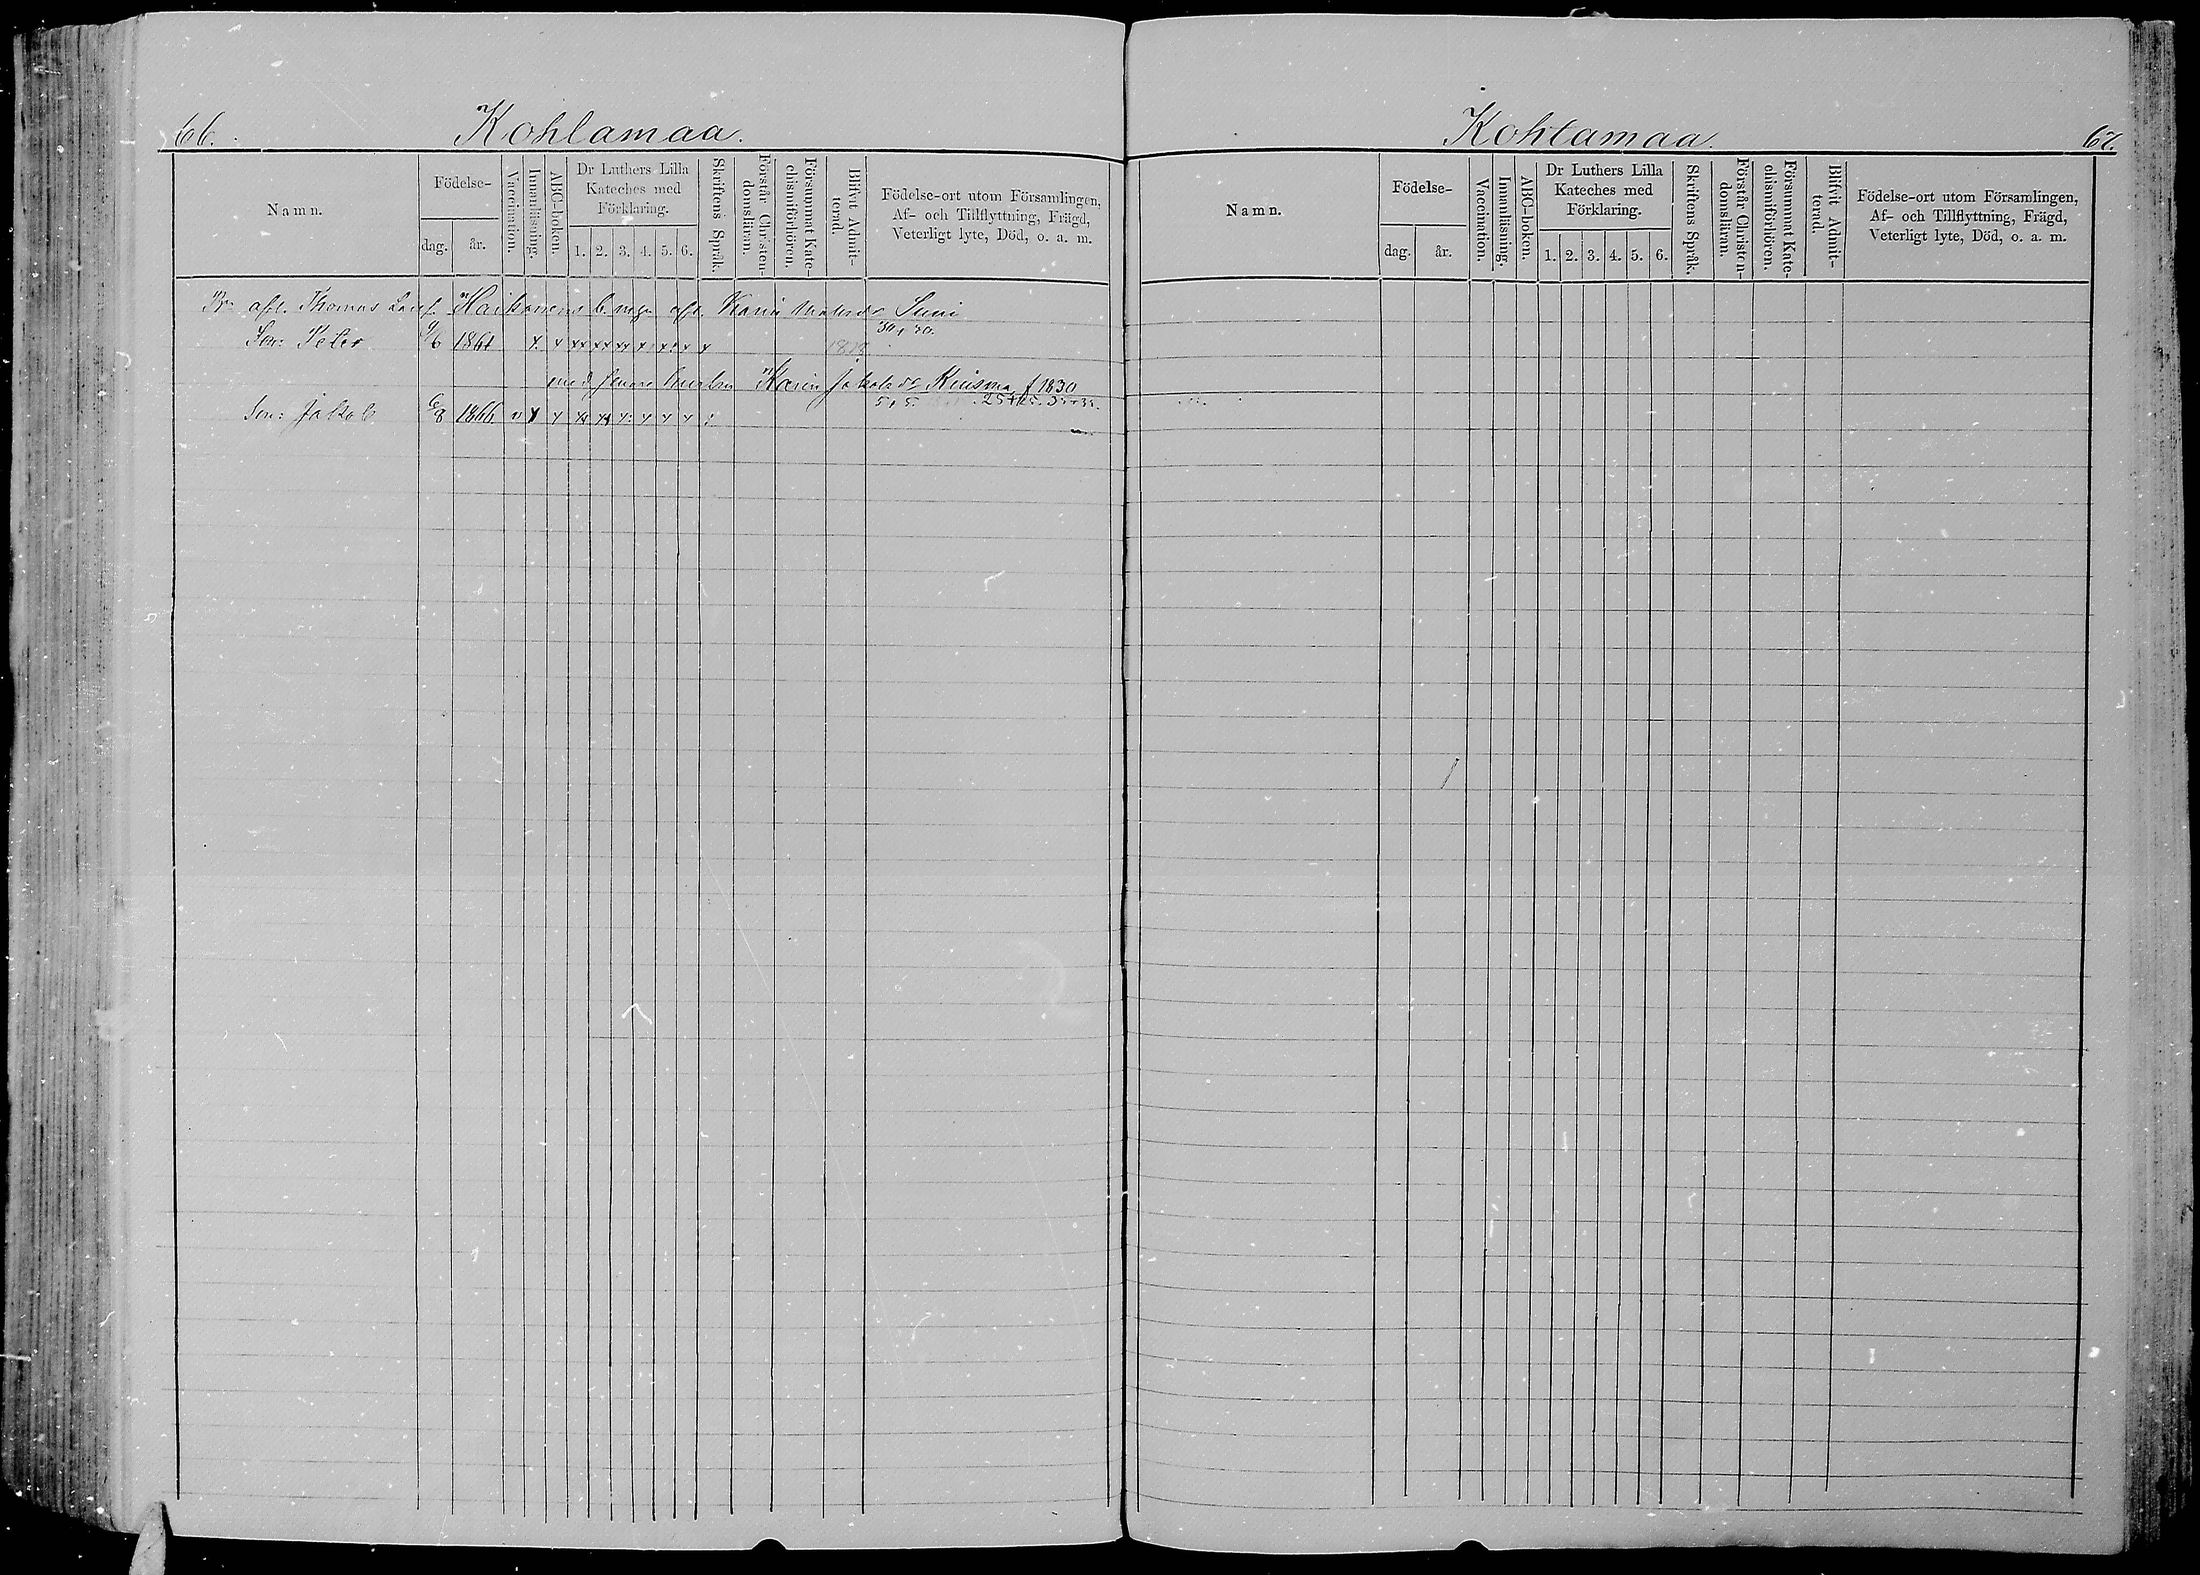 66.
Kohlamaa.
Namn.
Födelse-
dag.
år.
Vaccination.
Innanläsning.
ABC-boken.
Dr Luthers Lilla
Kateches med
Förklaring.
1. 2. 3. 4. 5. 6.
Skriftens Språk.
Förstår Christen-
domsläran.
Försummat Kate-
chismiförhören.
Blifvit Admit-
terad.
Födelse-ort utom Församlingen,
Af- och Tillflyttning, Frägd,
Veterligt lyte, Död, o. a. m.
afl. Thomas Haikonens afl. Karin Suni
Son: Peter 9/6 1861 x x xx xx xx x x x x
med senare hustru Karin Jakobsdr Kuisma f 1830
Son: Jakob 6/8 1866. v x x x x x x x x
Kohlamaa.
67.
Namn.
Födelse-
dag.
år.
Vaccination.
Innanläsning.
ABC-boken.
Dr Luthers Lilla
Kateches med
Förklaring.
1. 2. 3. 4. 5. 6.
Skriftens Språk.
Förstår Christen-
domsläran.
Försummat Kate-
chismiförhören.
Blifvit Admit-
terad.
Födelse-ort utom Församlingen,
Af- och Tillflyttning, Frägd,
Veterligt lyte, Död, o. a. m.